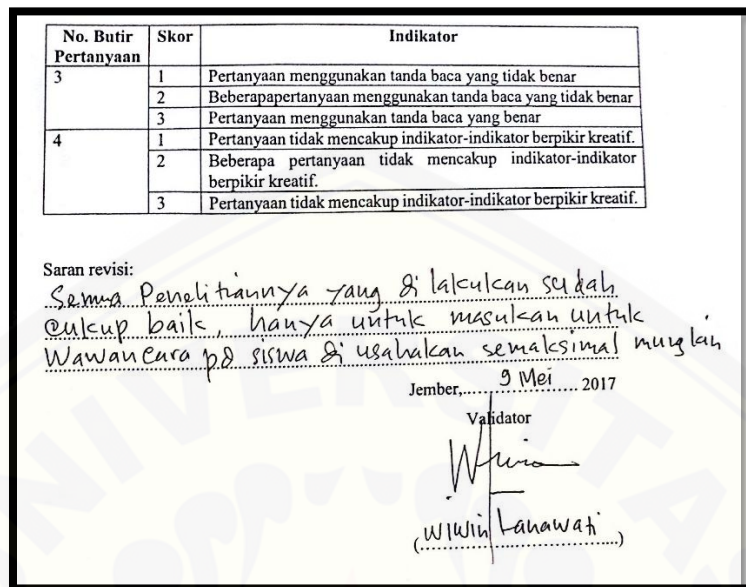 No. Butir Pertanyaan Skor Indikator
3 1 Pertanyaan menggunakan tanda baca yang tidak benar
2 Beberapapertanyaan menggunakan tanda baca yang tidak benar
3 Pertanyaan menggunakan tanda baca yang benar
4 1 Pertanyaan tidak mencakup indikator-indikator berpikir kreatif.
2 Beberapa pertanyaan tidak mencakup indikator-indikator
berpikir kreatif.
3 Pertanyaan tidak mencakup indikator-indikator berpikir kreatif.
Saran revisi:
Semua Penelitiannya yang di lakukan sudah
cukup baik, hanya untuk masukan untuk
Wawancara pd siswa di usahakan semaksimal mungkin
Jember, 9 Mei 2017
Validator
(Wiwin Lanawati)
UNIVERSITA